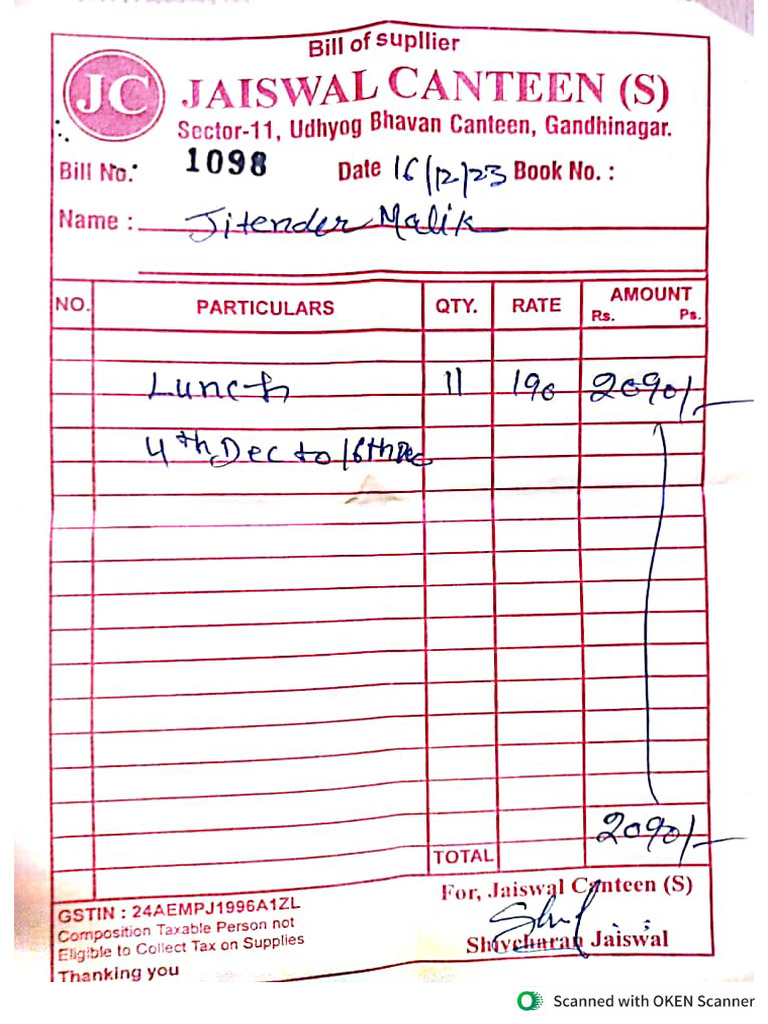 Bill of supllier
JC JAISWAL CANTEEN (S)
Sector-11, Udhyog Bhavan Canteen, Gandhinagar.
Bill No.: 1098 Date 16/12/23 Book No. :
Name : Jitender Malik
NO. PARTICULARS QTY. RATE AMOUNT
Rs. Ps.
Lunch 11 190 2090/-
4th Dec to 16th Dec
2090/-
TOTAL
For, Jaiswal Canteen (S)
GSTIN : 24AEMPJ1996A1ZL
Composition Taxable Person not
Eligible to Collect Tax on Supplies
Shivcharan Jaiswal
Thanking you
Scanned with OKEN Scanner